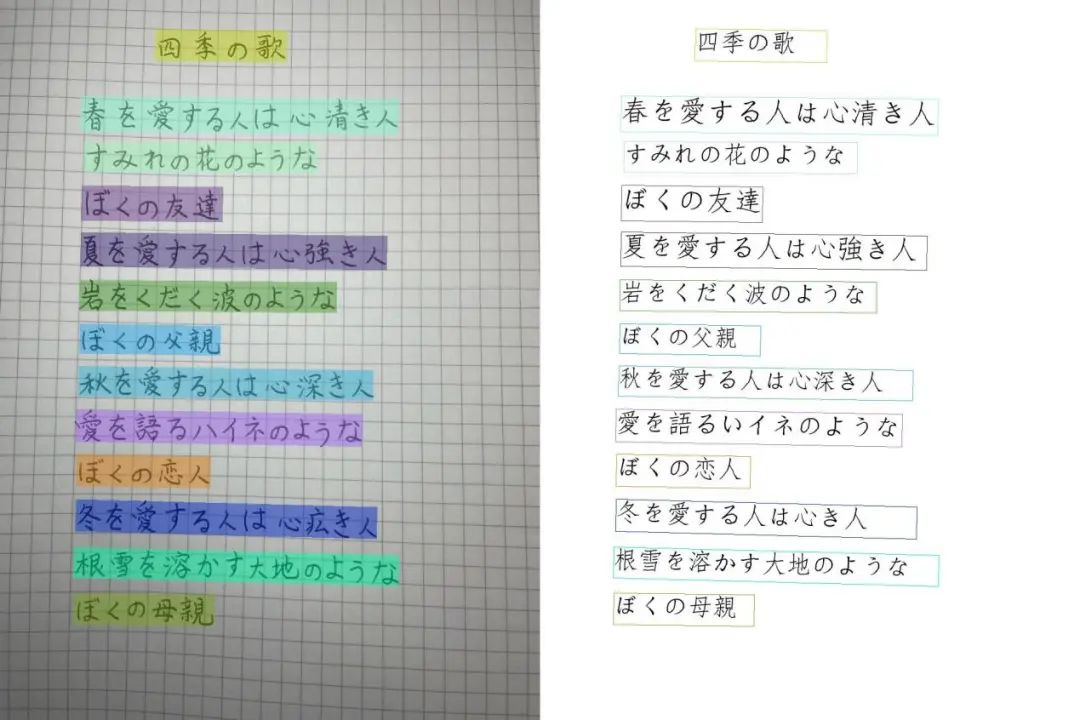 四季の歌
春を愛する人は心清き人
すみれの花のような
ぼくの友達
夏を愛する人は心強き人
岩をくだく波のような
ぼくの父親
秋を愛する人は心深き人
愛を語るハイネのような
ぼくの恋人
冬を愛する人は心広き人
根雪を溶かす大地のような
ぼくの母親
四季の歌
春を愛する人は心清き人
すみれの花のような
ぼくの友達
夏を愛する人は心強き人
岩をくだく波のような
ぼくの父親
秋を愛する人は心深き人
愛を語るいイネのような
ぼくの恋人
冬を愛する人は心き人
根雪を溶かす大地のような
ぼくの母親